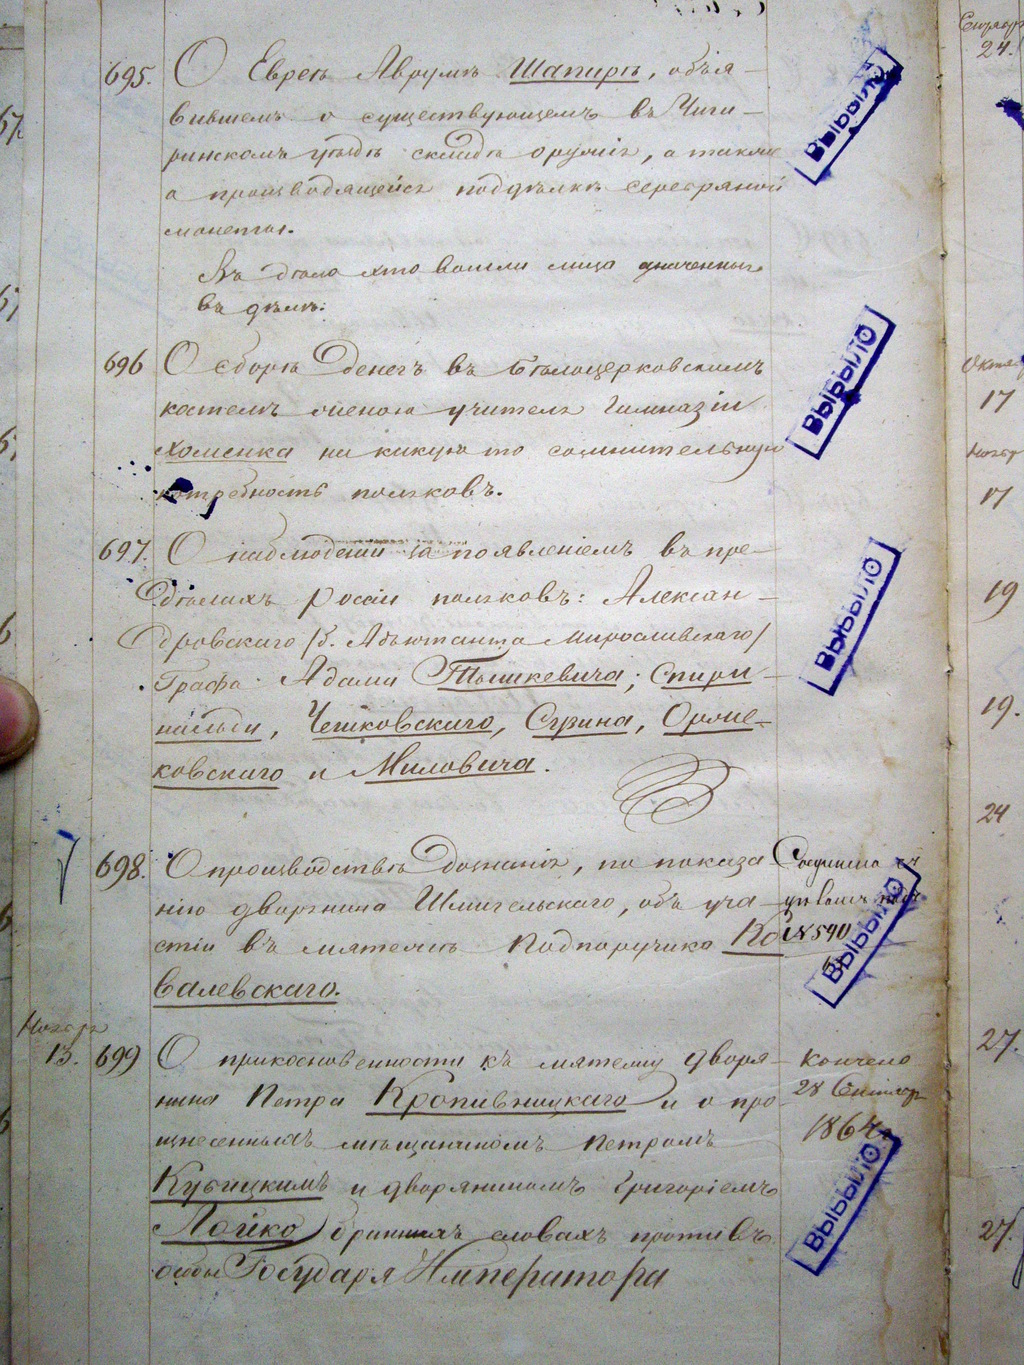 695. О Евреѣ Аврумѣ Шапирѣ, объя-
вившемъ о существующемъ въ Чиги-
ринскомъ уѣздѣ складѣ оружія, а также
о производящейся поддѣлкѣ серебряной
монеты.
Въ дѣло это вошли лица значенные
въ дѣлѣ:
ВЫБЫЛО
696 О сборѣ денегъ въ Бѣлоцерковскомъ
костелѣ женою учителя Гимназіи
Хоменка на какую то сомнительную
потребность поляковъ.
ВЫБЫЛО
697. О наблюденіи за появленіемъ въ пре-
дѣлахъ Россіи поляковъ: Алексан-
дровскаго /б. Адъютанта Мирославскаго/
Графа Адама Тышкевича; Спири-
нальди, Чешковскаго, Сузина, Ориме-
ковскаго и Миловича.
ВЫБЫЛО
698. О производствѣ дознанія, по показа-
нію дворянина Шмигельскаго, объ уча-
стіи въ мятежѣ Подпоручика Ко
валевскаго.
№ 590
ВЫБЫЛО
Ноября
13. 699 О прикосновенности къ мятежу дворя-
нина Петра Кропивницкаго и о про
изнесенныхъ мѣщаниномъ Петромъ
Кубицкимъ и дворяниномъ Григоріемъ
Лойко бранныхъ словахъ противъ
особы Государя Императора
Кончено
28 Сентябр
1864 г.
ВЫБЫЛО
24.
17
17
19
19.
24
27.
27.